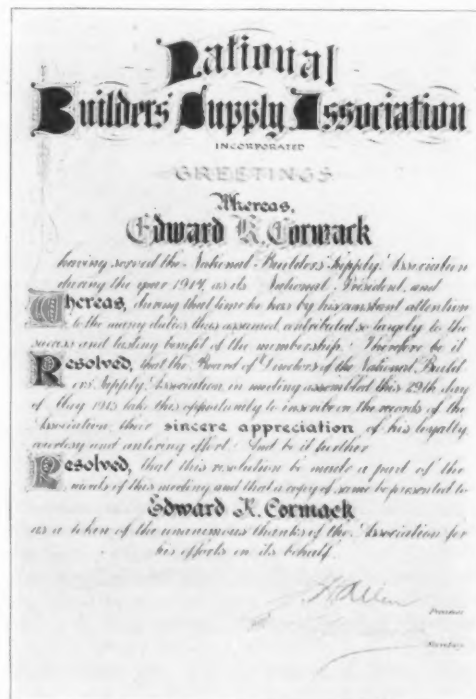 National
Builders' Supply Association
INCORPORATED
GREETINGS
Whereas,
Edward K. Cormack
having served the National Builders' Supply Association
during the year 1914, as its National President, and
Whereas, during that time he has by his constant attention
to the many duties thus assumed contributed so largely to the
success and lasting benefit of the membership. Therefore be it
Resolved, that the Board of Directors of the National Build
ers' Supply Association in meeting assembled this 29th day
of May 1915 take this opportunity to inscribe on the records of the
Association their sincere appreciation of his loyalty
courtesy and untiring effort. And be it further
Resolved, that this resolution be made a part of the
records of this meeting and that a copy of same be presented to
Edward K. Cormack
as a token of the unanimous thanks of the Association for
his efforts in its behalf.
Allen
President
Secretary